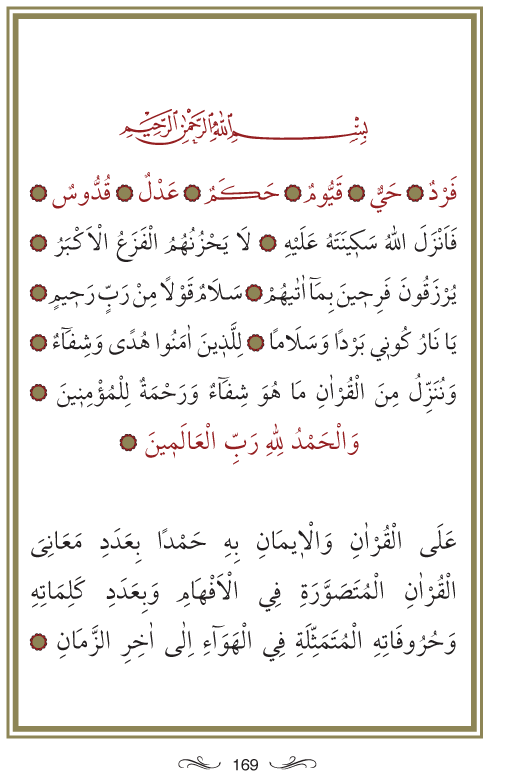 بِسْمِ اللّٰهِ الرَّحْمٰنِ الرَّحٖيمِ
فَرْدٌ ۞ حَىٌّ ۞ قَيُّومٌ ۞ حَكَمٌ ۞ عَدْلٌ ۞ قُدُّوسٌ ۞
فَاَنْزَلَ اللّٰهُ سَكٖينَتَهُ عَلَيْهِ ۞ لَا يَحْزُنُهُمُ الْفَزَعُ الْاَكْبَرُ ۞
يُرْزَقُونَ فَرِحٖينَ بِمَٓا اٰتٰيهُمْ ۞ سَلَامٌ قَوْلًا مِنْ رَبٍّ رَحٖيمٍ ۞
يَا نَارُ كُونٖي بَرْدًا وَسَلَامًا ۞ لِلَّذٖينَ اٰمَنُوا هُدًى وَشِفَٓاءٌ ۞
وَنُنَزِّلُ مِنَ الْقُرْاٰنِ مَا هُوَ شِفَٓاءٌ وَرَحْمَةٌ لِلْمُؤْمِنٖينَ ۞
وَالْحَمْدُ لِلّٰهِ رَبِّ الْعَالَمٖينَ ۞
عَلَى الْقُرْاٰنِ وَالْاٖيمَانِ بِهِ حَمْدًا بِعَدَدِ مَعَانِىَ
الْقُرْاٰنِ الْمُتَصَوَّرَةِ فِي الْاَفْهَامِ وَبِعَدَدِ كَلِمَاتِهِ
وَحُرُوفَاتِهِ الْمُتَمَثِّلَةِ فِي الْهَوَٓاءِ اِلٰى اٰخِرِ الزَّمَانِ ۞
169